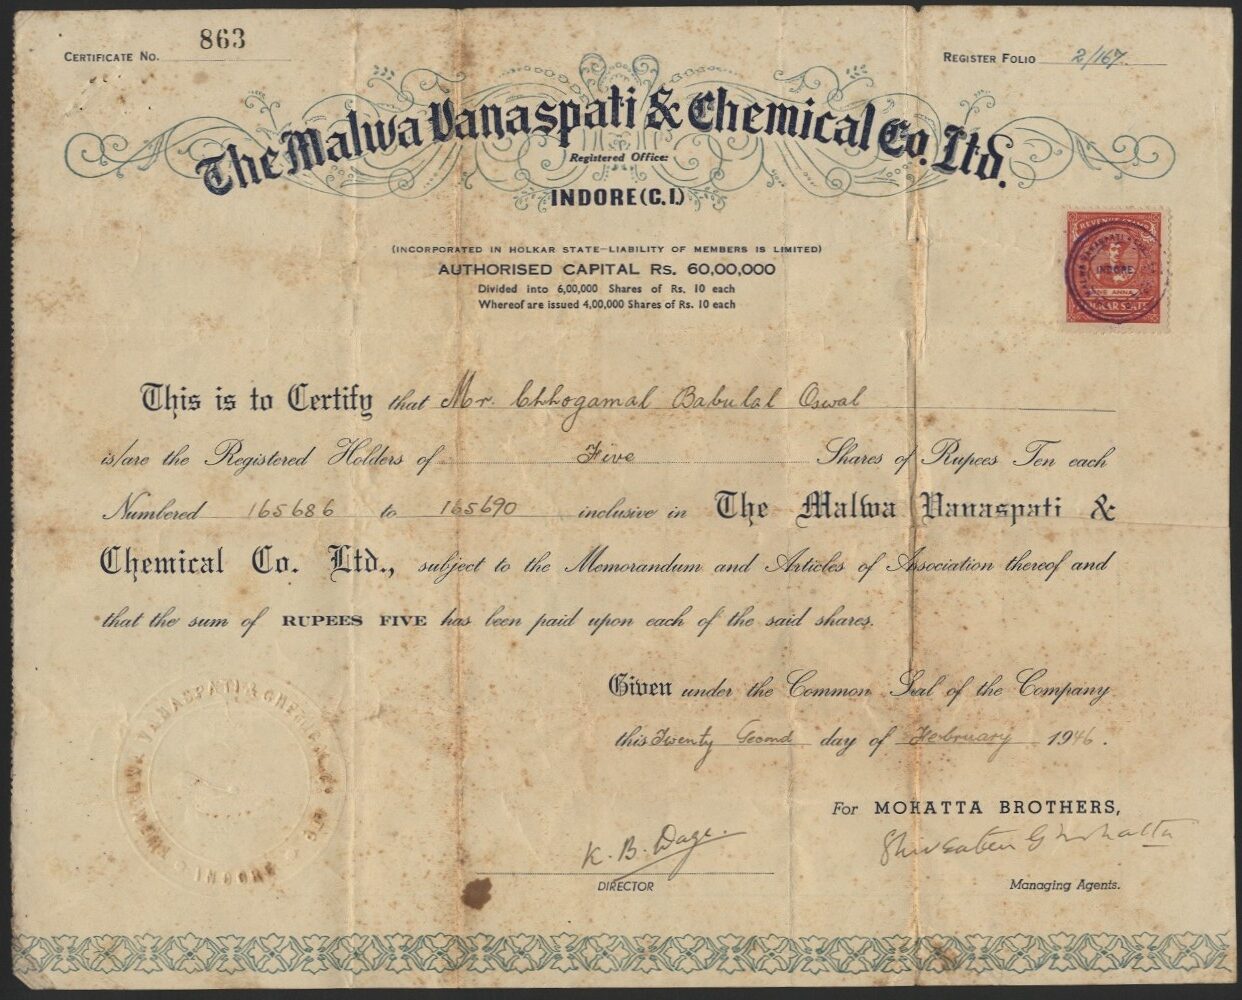 CERTIFICATE NO. 863
REGISTER FOLIO 2/167.
The Malwa Vanaspati & Chemical Co. Ltd.
Registered Office:
INDORE (C.I.)
(INCORPORATED IN HOLKAR STATE—LIABILITY OF MEMBERS IS LIMITED)
AUTHORISED CAPITAL Rs. 60,00,000
Divided into 6,00,000 Shares of Rs. 10 each
Whereof are issued 4,00,000 Shares of Rs. 10 each
INDORE
ONE ANNA
This is to Certify that Mr. Chhogamal Babulal Oswal
is/are the Registered Holders of Five Shares of Rupees Ten each
Numbered 165686 to 165690 inclusive in The Malwa Vanaspati &
Chemical Co. Ltd., subject to the Memorandum and Articles of Association thereof and
that the sum of RUPEES FIVE has been paid upon each of the said shares.
Given under the Common Seal of the Company
this Twenty Second day of February 1946.
VANASPATI & CHEMICAL
INDORE
For MOHATTA BROTHERS,
K. B. Dage
DIRECTOR
Managing Agents.